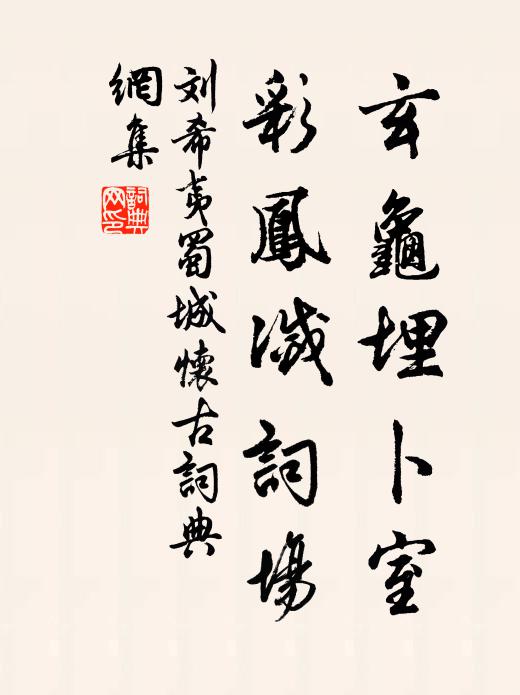 玄龜埋卜室
彩鳳滅詞場
刘希夷蜀城懷古詞典
網集
詞典網印